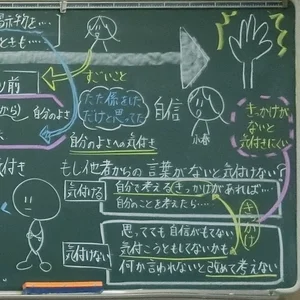 示物を…
ときも…
すごいこと
前
ただ係をした
だけと思ってた
から) 自分のよさ
自信
小春
きっかけが
ないと
気付きにくい
自分のよさへの気付き
付き
もし他者からの言葉がないと気付けない?
気付ける
自分で考えるきっかけがあれば…
自分のことを考えたら…
きっかけ
気付けない
思ってても自信がもてない
気付こうともしてないかも
何か言われないと改めて考えない